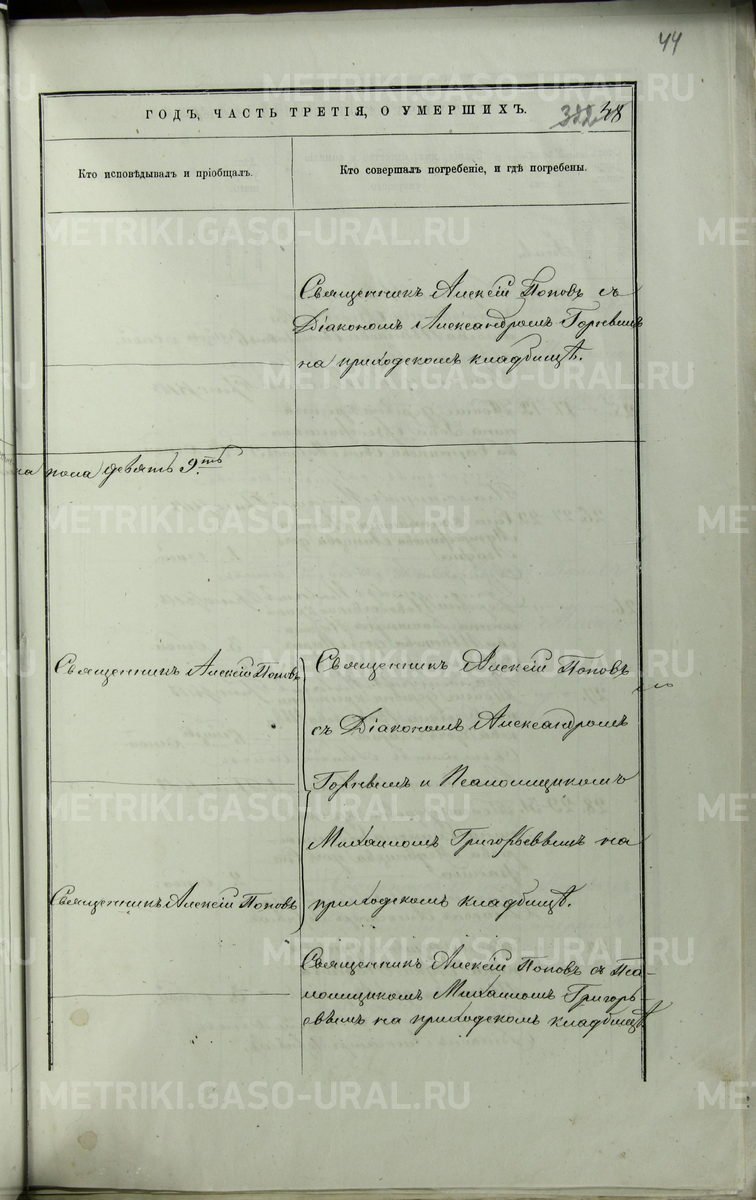 44
ГОДЪ, ЧАСТЬ ТРЕТІЯ, О УМЕРШИХЪ.
48
Кто исповѣдывалъ и пріобщалъ.
Кто совершалъ погребеніе, и гдѣ погребены.
Священникъ Алексій Поповъ съ
Діакономъ Александромъ
на приходскомъ кладбищѣ.
на пола девять 9.ть
Священникъ Алексій Поповъ
Священникъ Алексій Поповъ
съ Діакономъ Александромъ
и Псаломщикомъ
Михаиломъ Григорьевымъ на
приходскомъ кладбищѣ.
Священникъ Алексій Поповъ
Священникъ Алексій Поповъ съ Пса-
ломщикомъ Михаиломъ Григорь-
евымъ на приходскомъ кладбищѣ
METRIKI.GASO-URAL.RU